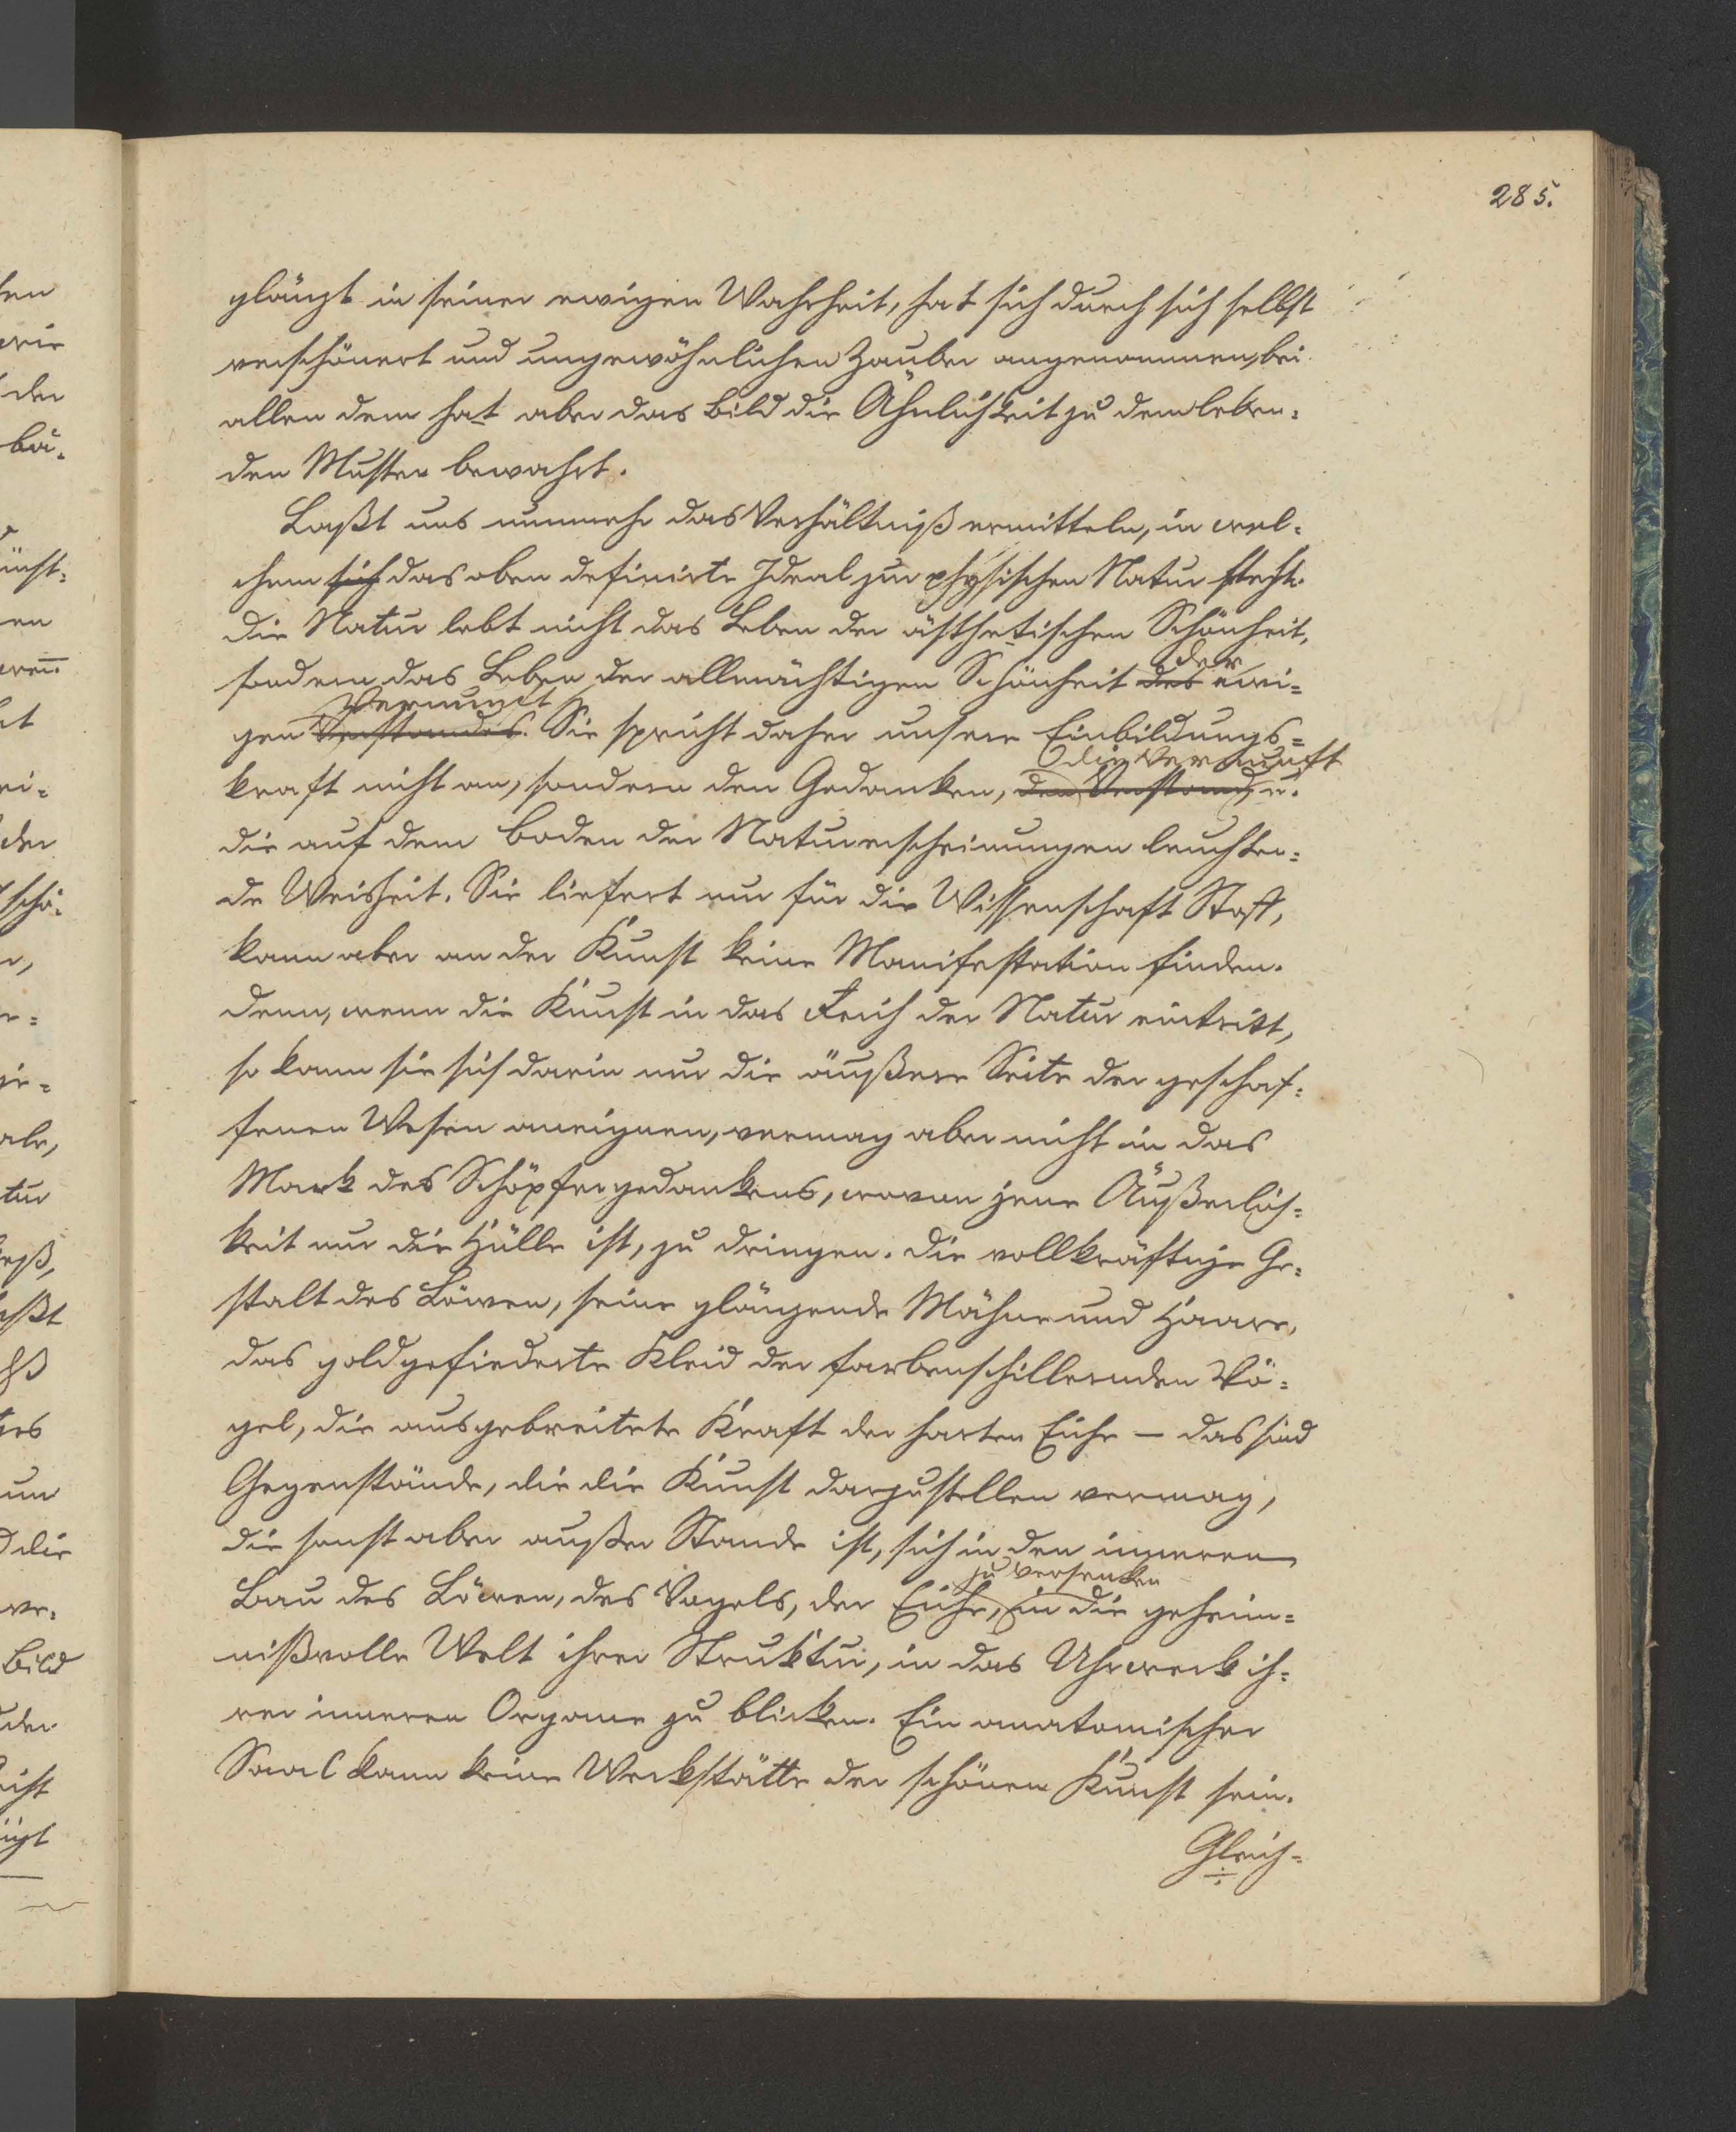 285.
glänzt in seiner ewigen Wahrheit, hat sich durch sich selbst
verschönert und ungewöhnlichen Zauber angenommen, bei
allen dem hat aber das Bild die Ähnlichkeit zu dem leben=
den Muster bewahrt.
Laßt uns nunmehr das Verhältniß ermitteln, in wel=
chem sich das oben definirte Ideal zur physischen Natur steht.
Die Natur lebt nicht das Leben der ästhetischen Schönheit,
der
sondern das Leben der allmächtigen Schönheit des ewi=
Vernunft
gen Verstandes. Sie spricht daher unsere Einbildungs=
die Vernunft
kraft nicht an, sondern den Gedanken, den Verstand, u.
die auf dem Boden der Naturerscheinungen leuchten=
de Weisheit. Sie liefert nur für die Wissenschaft Stoff,
kann aber an der Kunst keine Manifestation finden.
Denn, wenn die Kunst in das Reich der Natur eintritt,
so kann sie sich darin nur die äußere Seite der geschaf=
fenen Wesen aneignen, vermag aber nicht in das
Mark des Schöpfergedankens, wovon jene Äußerlich=
keit nur die Hülle ist, zu dringen. Die vollkräftige Ge=
stalt des Löwen, seine glänzende Mähne und Haare,
das goldgefiederte Kleid der farbenschillernden Vö=
gel, die ausgebreitete Kraft der harten Eiche — das sind
Gegenstände, die die Kunst darzustellen vermag,
die sonst aber außer Stande ist, sich in den inneren
zu versenken
Bau des Löwen, des Vogels, der Eiche, in die geheim=
nißvolle Welt ihrer Struktur, in das Uhrwerk ih=
rer inneren Organe zu blicken. Ein anatomischer
Saal kann keine Werkstätte der schönen Kunst sein.
Gleich=